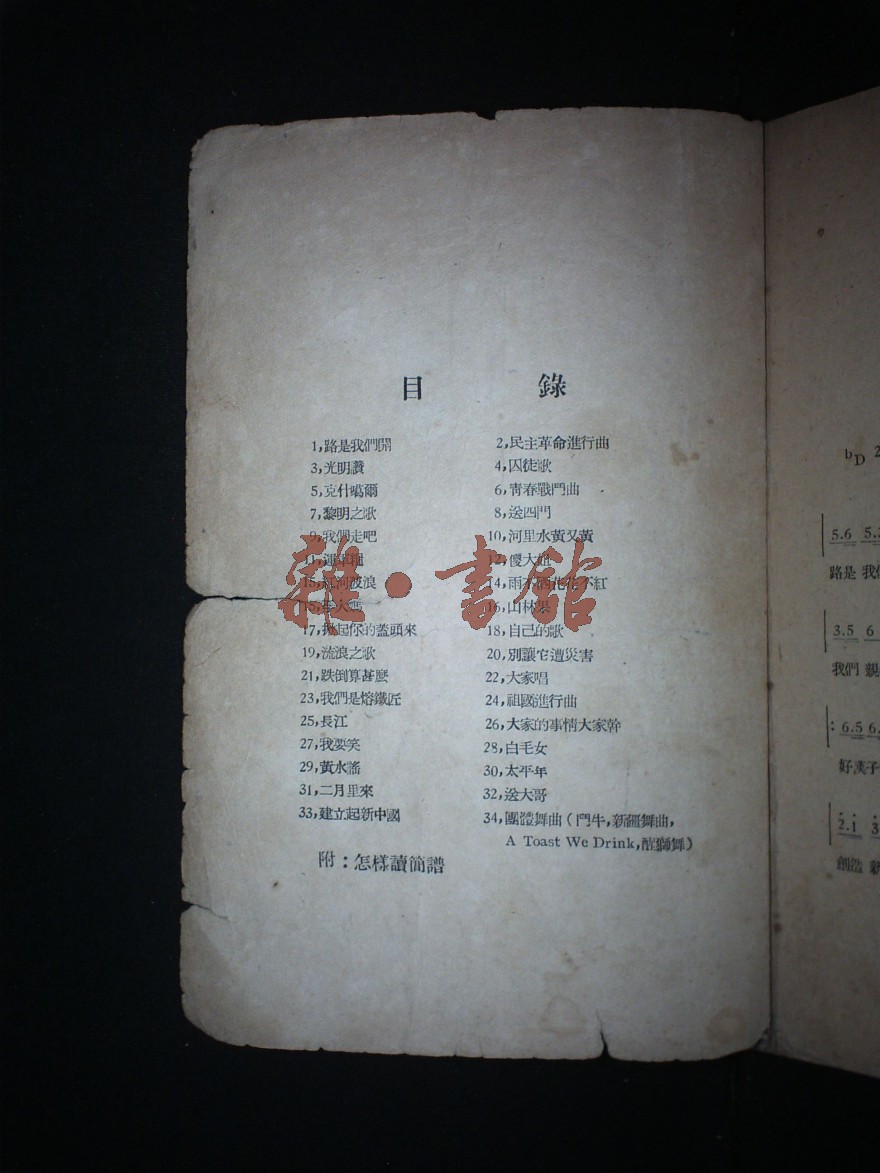 目 錄
1,路是我們開 2,民主革命進行曲
3,光明讚 4,囚徒歌
5,克什噶爾 6,青春戰鬥曲
7,黎明之歌 8,送四門
9,我們走吧 10,河里水黃又黃
11, 12,傻大姐
15,紅河波浪 14,雨不洒花花不紅
15, 16,山林果
17,掀起你的蓋頭來 18,自己的歌
19,流浪之歌 20,別讓它遭災害
21,跌倒算甚麼 22,大家唱
23,我們是熔鐵匠 24,祖國進行曲
25,長江 26,大家的事情大家幹
27,我要笑 28,白毛女
29,黃水謠 30,太平年
31,二月里來 32,送大哥
33,建立起新中國 34,團體舞曲(鬥牛,新疆舞曲,
A Toast We Drink,醒獅舞)
附:怎樣讀簡譜
雜·書館
bD 2
5.6 5.3
路是 我們
3.5 6
我們 親
:6.5 6.
好漢子
2.1 3
創造 新